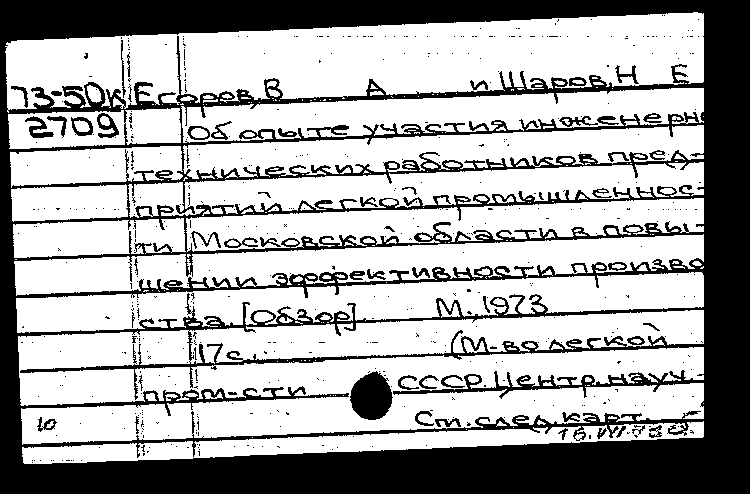 73-50к Егоров, В А и Шаров, Н Е
2709 Об опыте участия инженерн
технических работников пред-
приятий легкой промышленнос-
ти Московской области в повы-
шении эффективности произво
ства. [Обзор]. М., 1973
17с.. (М-во легкой
пром-сти СССР. Центр. науч.-
10 Сm. след. карт.